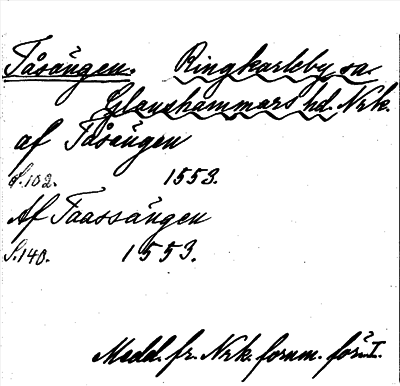 Tåsängen. Ringkarleby sn.
Glanshammars hd. Nrk.
af Tåsängen
S. 102. 1553.
Af Taassängen
S. 140. 1553.
Medd. fr. Nrk. fornm. för. I.